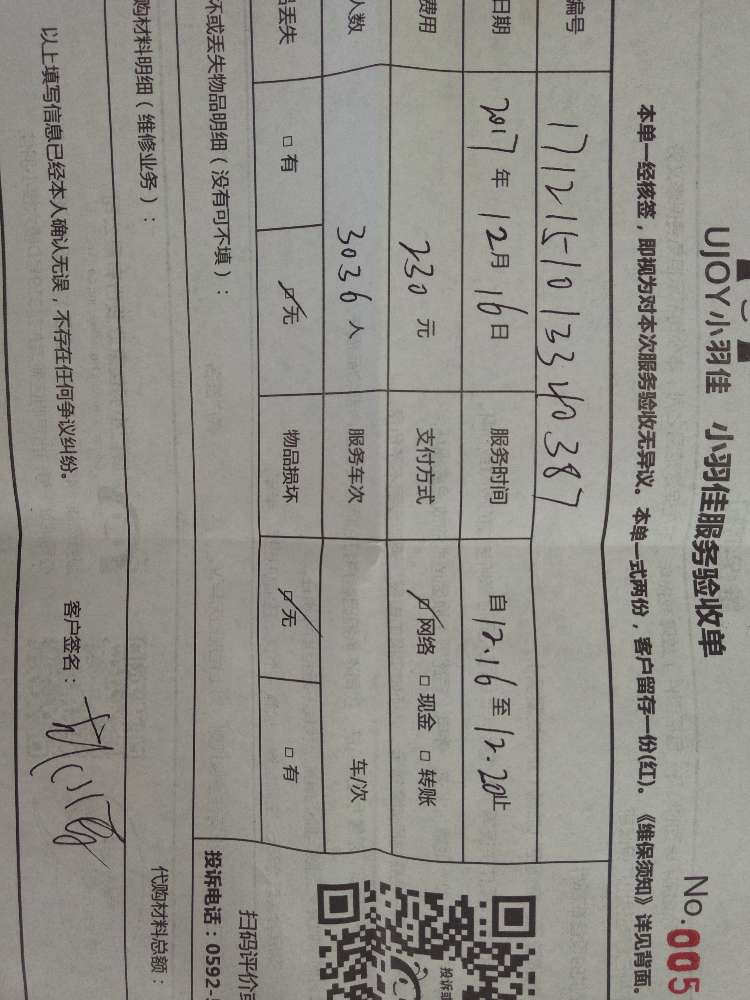 UJOY小羽佳 小羽佳服务验收单
No.005
本单一经核签，即视为对本次服务验收无异议。本单一式两份，客户留存一份(红)。《维保须知》详见背面。
编号
日期 2017年12月16日 服务时间 自12.16至12.20止
费用 230元 支付方式 网络 □现金 □转账
人数 3036人 服务车次 车/次
品丢失 □有 无 物品损坏 无 □有
坏或丢失物品明细（没有可不填）：
扫码评价或
投诉电话：0592-
购材料明细（维修业务）：
代购材料总额：
以上填写信息已经本人确认无误，不存在任何争议纠纷。 客户签名：